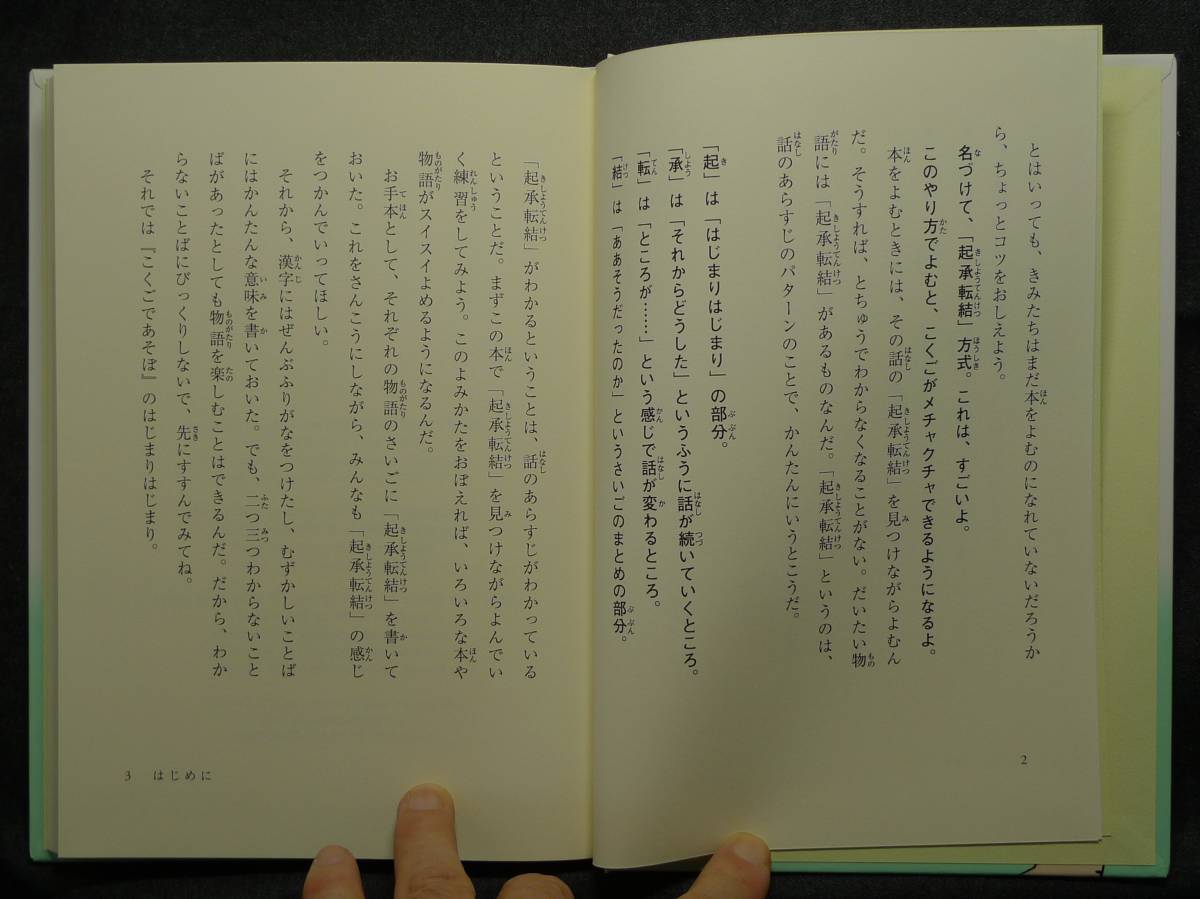 とはいっても、きみたちはまだ本をよむのになれていないだろうか
ら、ちょっとコツをおしえよう。
名づけて、「起承転結」方式。これは、すごいよ。
このやり方でよむと、こくごがメチャクチャできるようになるよ。
本をよむときには、その話の「起承転結」を見つけながらよむん
だ。そうすれば、とちゅうでわからなくなることがない。だいたい物
語には「起承転結」があるものなんだ。「起承転結」というのは、
話のあらすじのパターンのことで、かんたんにいうとこうだ。
「起」は「はじまりはじまり」の部分。
「承」は「それからどうした」というふうに話が続いていくところ。
「転」は「ところが……」という感じで話が変わるところ。
「結」は「ああそうだったのか」というさいごのまとめの部分。
2
「起承転結」がわかるということは、話のあらすじがわかっている
ということだ。まずこの本で「起承転結」を見つけながらよんでい
く練習をしてみよう。このよみかたをおぼえれば、いろいろな本や
物語がスイスイよめるようになるんだ。
お手本として、それぞれの物語のさいごに「起承転結」を書いて
おいた。これをさんこうにしながら、みんなも「起承転結」の感じ
をつかんでいってほしい。
それから、漢字にはぜんぶふりがなをつけたし、むずかしいことば
にはかんたんな意味を書いておいた。でも、二つ三つわからないこと
ばがあったとしても物語を楽しむことはできるんだ。だから、わか
らないことばにびっくりしないで、先にすすんでみてね。
それでは『こくごであそぼ』のはじまりはじまり。
3 はじめに